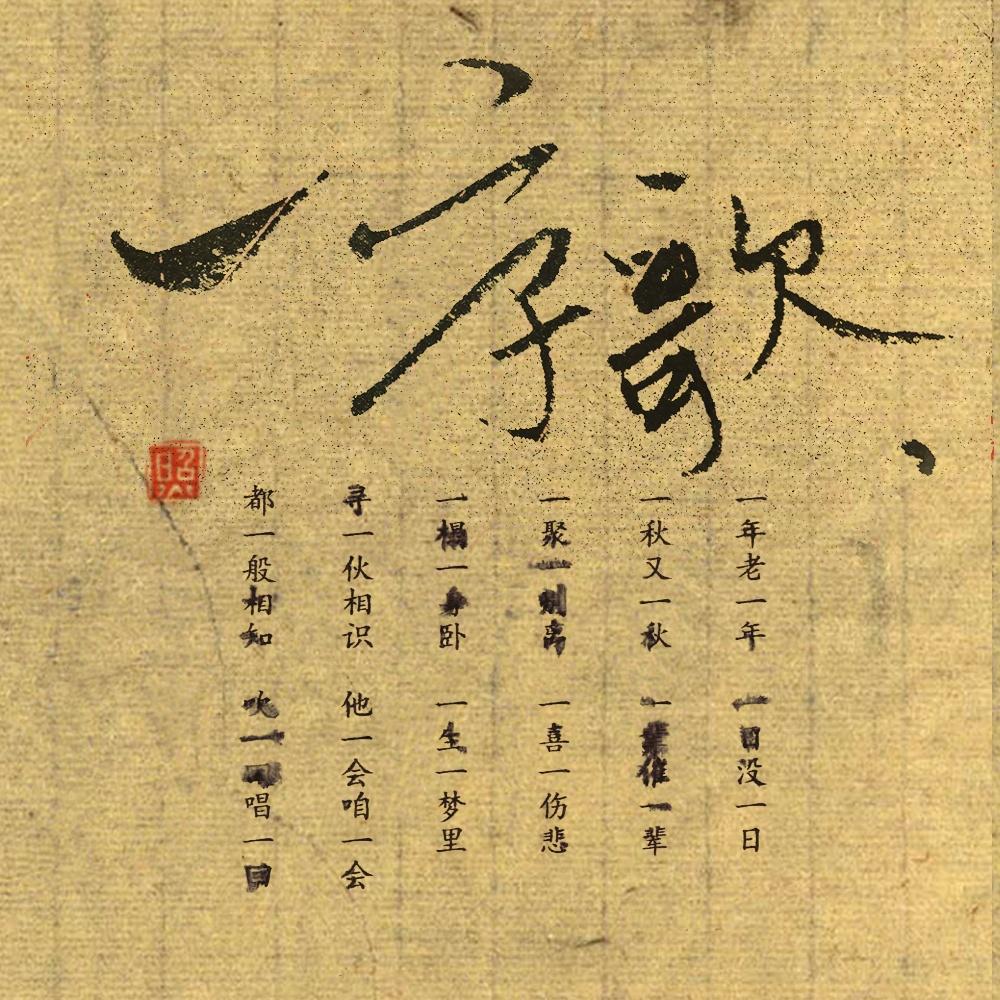 一字歌
一年老一年 一日没一日
一秋又一秋 一辈催一辈
一聚一别离 一喜一伤悲
一榻一身卧 一生一梦里
寻一伙相识 他一会咱一会
都一般相知 吹一回唱一回
昭